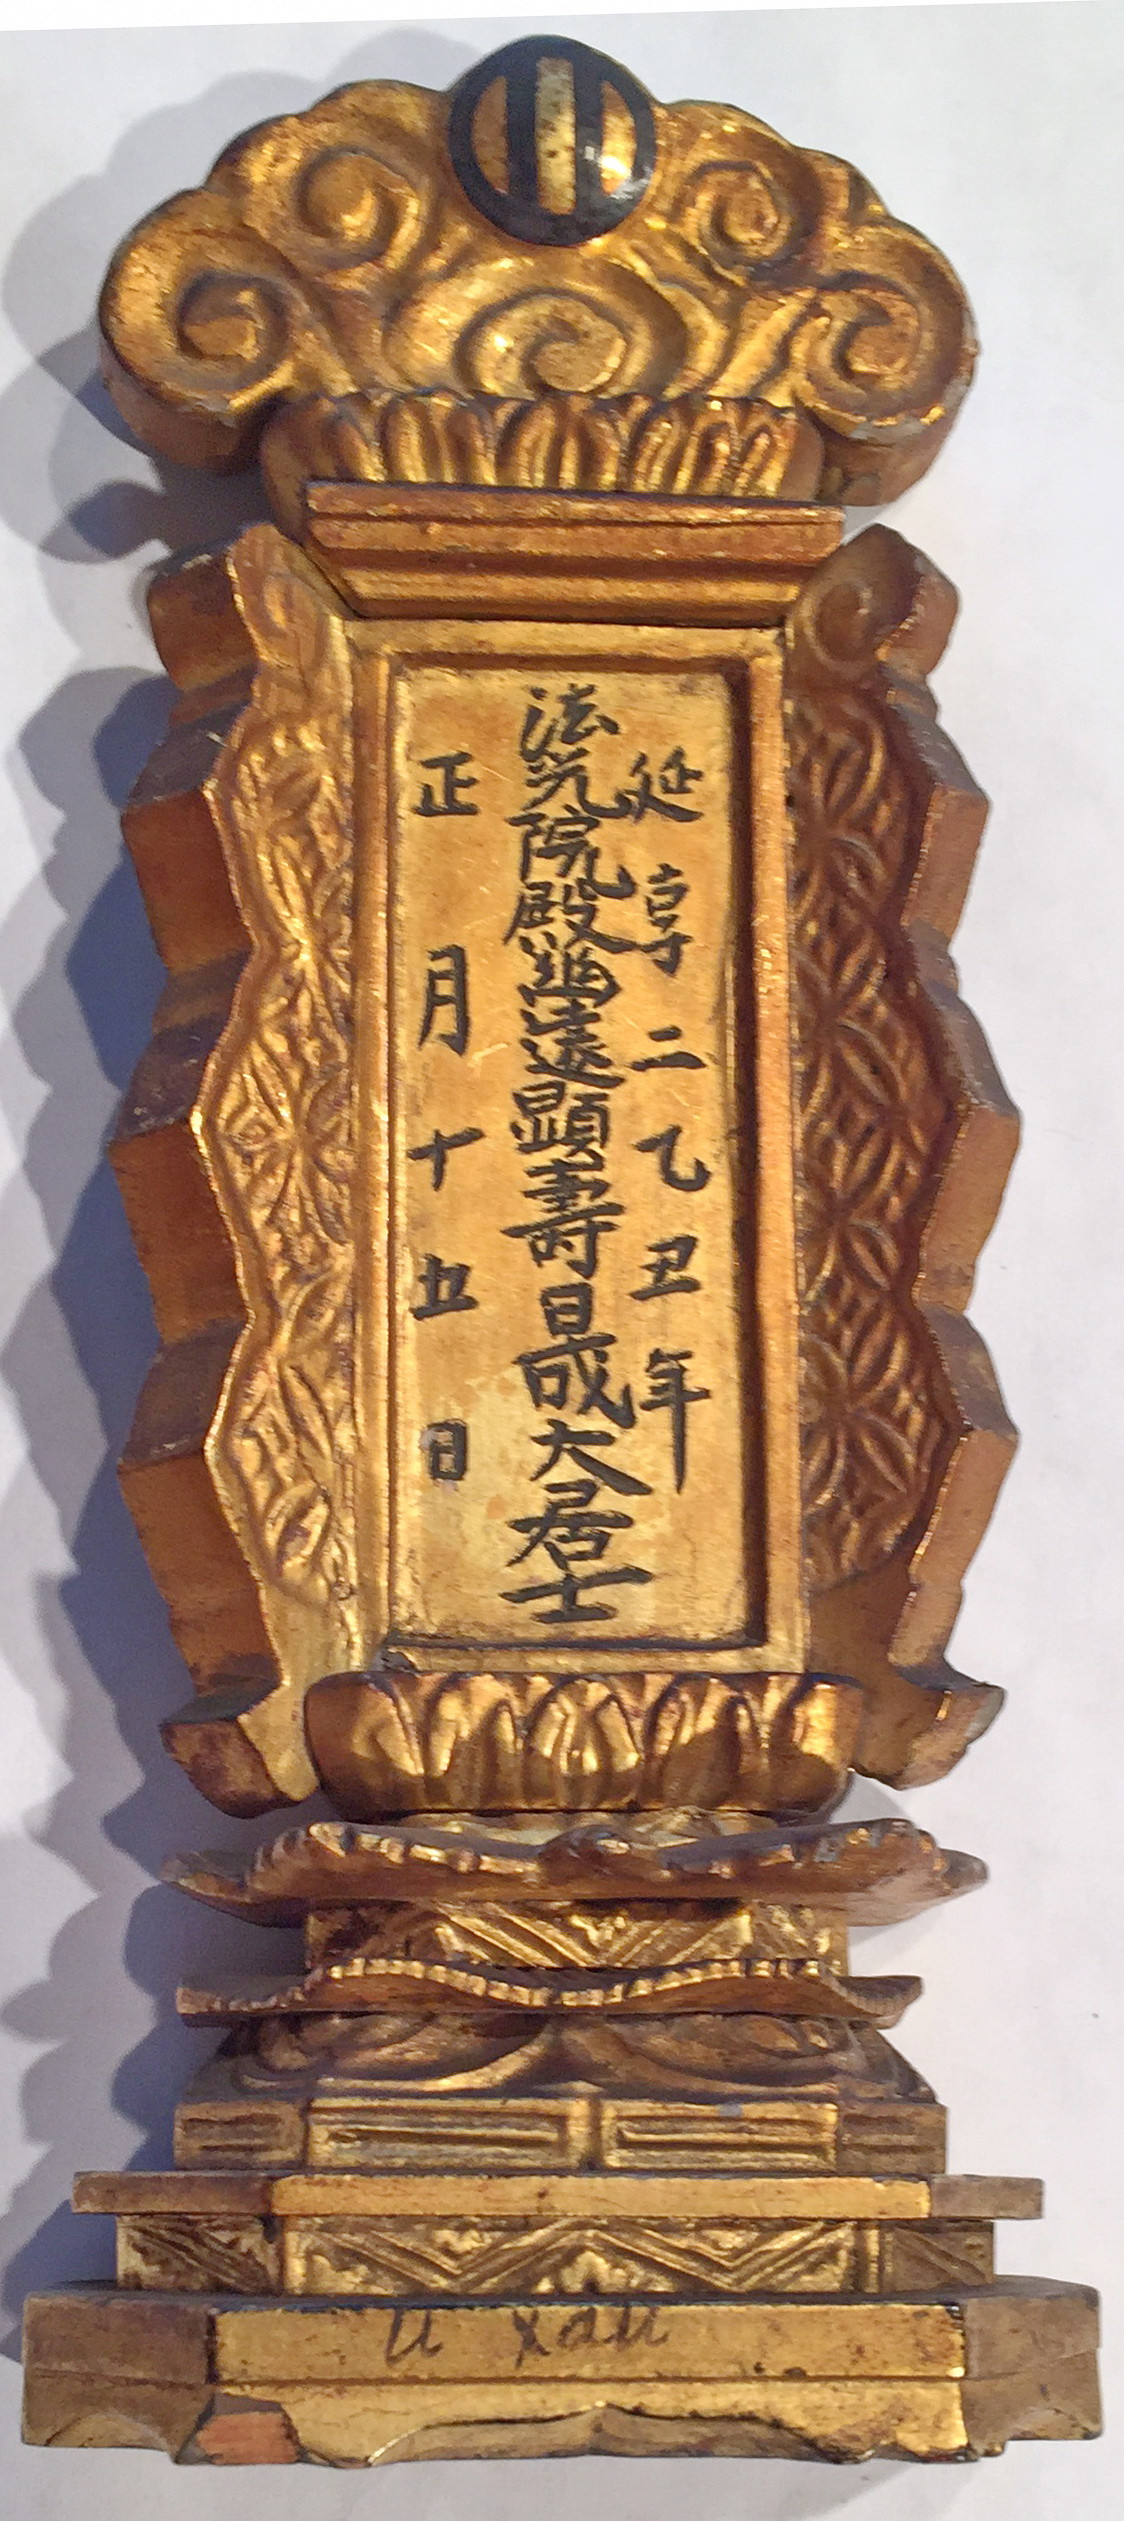 延享二乙丑年
法光院殿幽遠顕壽日晟大居士
正月十五日